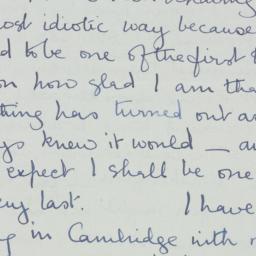 most idiotic way because
to be one of the first
on how glad I am tha
thing has turned out a
knew it would — a
expect I shall be one
last. I have
in Cambridge with